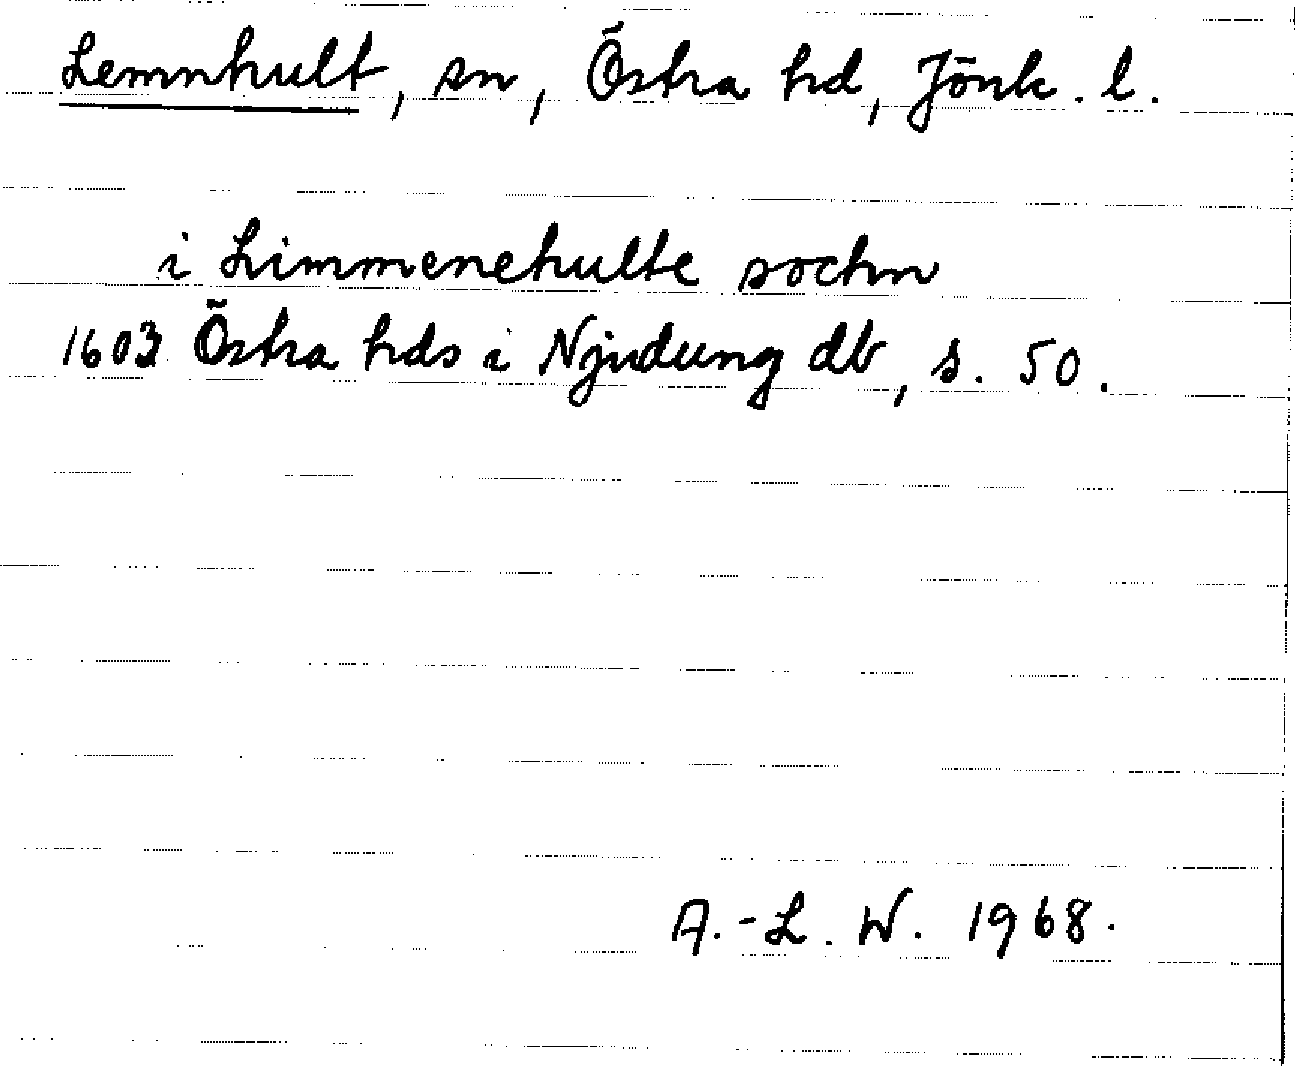 Lemnhult, sn, Östra hd, Jönk. l.
i Limmenehulte sochn
1603 Östra hds i Njudung db, s. 50.
A.-L. W. 1968.